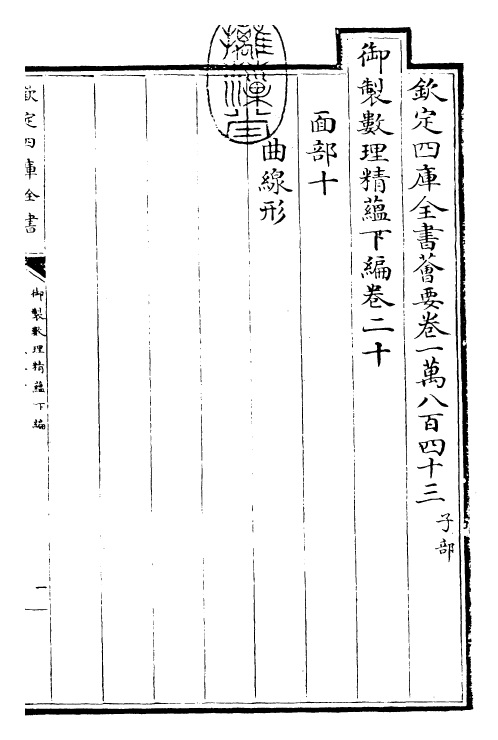 欽定四庫全書薈要卷一萬八百四十三 子部
御製數理精蘊下編卷二十
面部十
曲線形
欽定四庫全書
御製數理精蘊下編
一